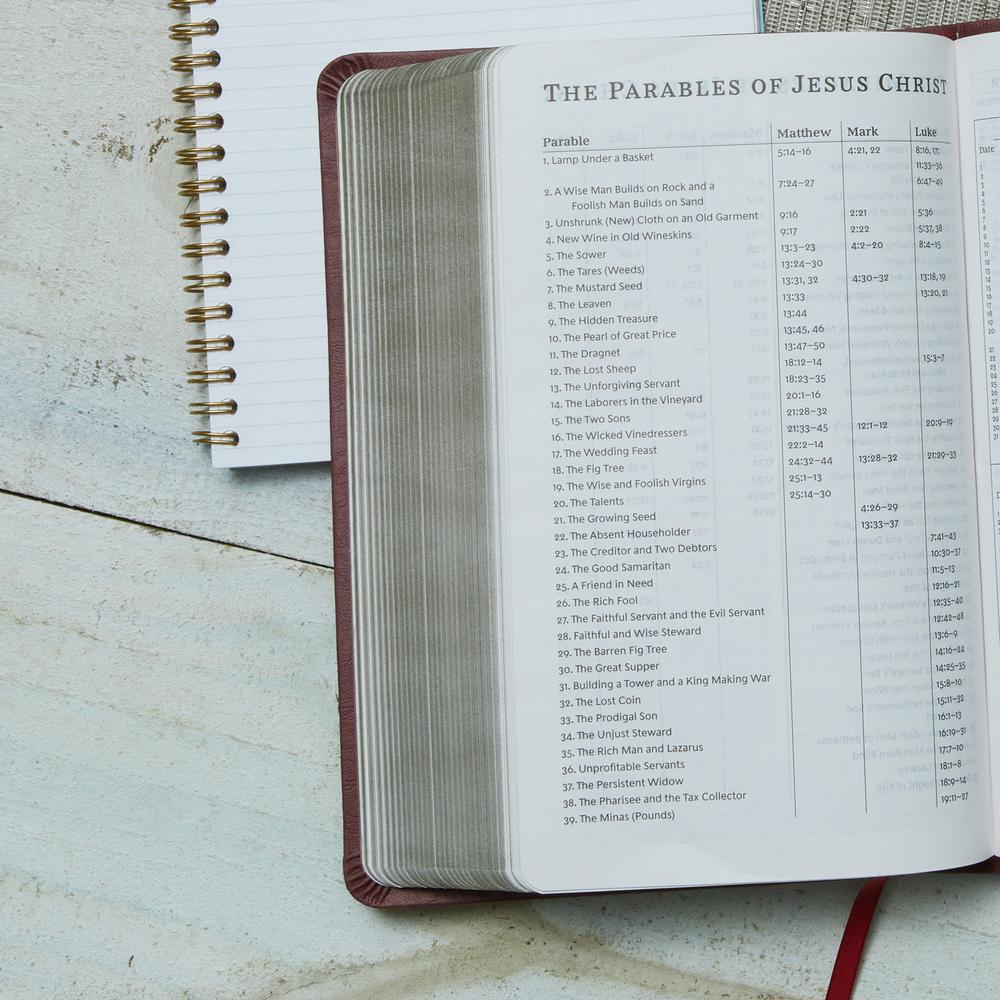 THE PARABLES OF JESUS CHRIST
Parable Matthew Mark Luke
1. Lamp Under a Basket 5:14–16 4:21, 22 8:16, 17;
11:33–36
2. A Wise Man Builds on Rock and a 7:24–27 6:47–49
Foolish Man Builds on Sand
3. Unshrunk (New) Cloth on an Old Garment 9:16 2:21 5:36
4. New Wine in Old Wineskins 9:17 2:22 5:37, 38
5. The Sower 13:3–23 4:2–20 8:4–15
6. The Tares (Weeds) 13:24–30
7. The Mustard Seed 13:31, 32 4:30–32 13:18, 19
8. The Leaven 13:33 13:20, 21
9. The Hidden Treasure 13:44
10. The Pearl of Great Price 13:45, 46
11. The Dragnet 13:47–50
12. The Lost Sheep 18:12–14 15:3–7
13. The Unforgiving Servant 18:23–35
14. The Laborers in the Vineyard 20:1–16
15. The Two Sons 21:28–32
16. The Wicked Vinedressers 21:33–45 12:1–12 20:9–19
17. The Wedding Feast 22:2–14
18. The Fig Tree 24:32–44 13:28–32 21:29–33
19. The Wise and Foolish Virgins 25:1–13
20. The Talents 25:14–30
21. The Growing Seed 4:26–29
22. The Absent Householder 13:33–37
23. The Creditor and Two Debtors 7:41–43
24. The Good Samaritan 10:30–37
25. A Friend in Need 11:5–13
26. The Rich Fool 12:16–21
27. The Faithful Servant and the Evil Servant 12:35–40
28. Faithful and Wise Steward 12:42–48
29. The Barren Fig Tree 13:6–9
30. The Great Supper 14:16–24
31. Building a Tower and a King Making War 14:25–35
32. The Lost Coin 15:8–10
33. The Prodigal Son 15:11–32
34. The Unjust Steward 16:1–13
35. The Rich Man and Lazarus 16:19–31
36. Unprofitable Servants 17:7–10
37. The Persistent Widow 18:1–8
38. The Pharisee and the Tax Collector 18:9–14
39. The Minas (Pounds) 19:11–27
Date
1
2
3
4
5
6
7
8
9
10
11
12
13
14
15
16
17
18
19
20
21
22
23
24
25
26
27
28
29
30
31